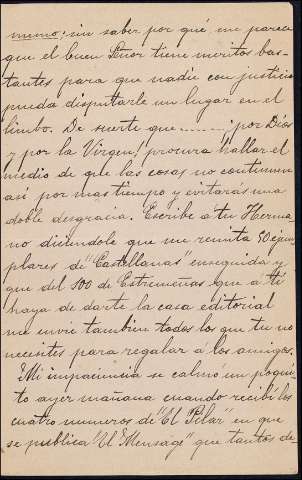 mimo; sin saber por qué me parece
que el buen Señor tiene meritos bas-
tantes para que nadie con justicia
pueda disputarle un lugar en el
limbo. De suerte que ......... ¡por Dios
y por la Virgen! procura hallar el
medio de que las cosas no continuen
asi por mas tiempo y evitarás una
doble desgracia. Escribe á tu Herma
no diciéndole que me remita 50 ejem
plares de "Castellanas" enseguida y
que del 100 de Extremeñas que á tí
haya de darte la casa editorial
me envie tambien todos los que tu no
necesites para regalar á los amigos.
Mi impaciencia se calmó un poqui
to ayer mañana cuando recibí los
cuatro numeros de "El Pilar" en que
se publica "El Mensage" que tantos de